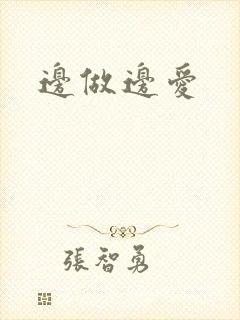 邊做邊愛
張智勇